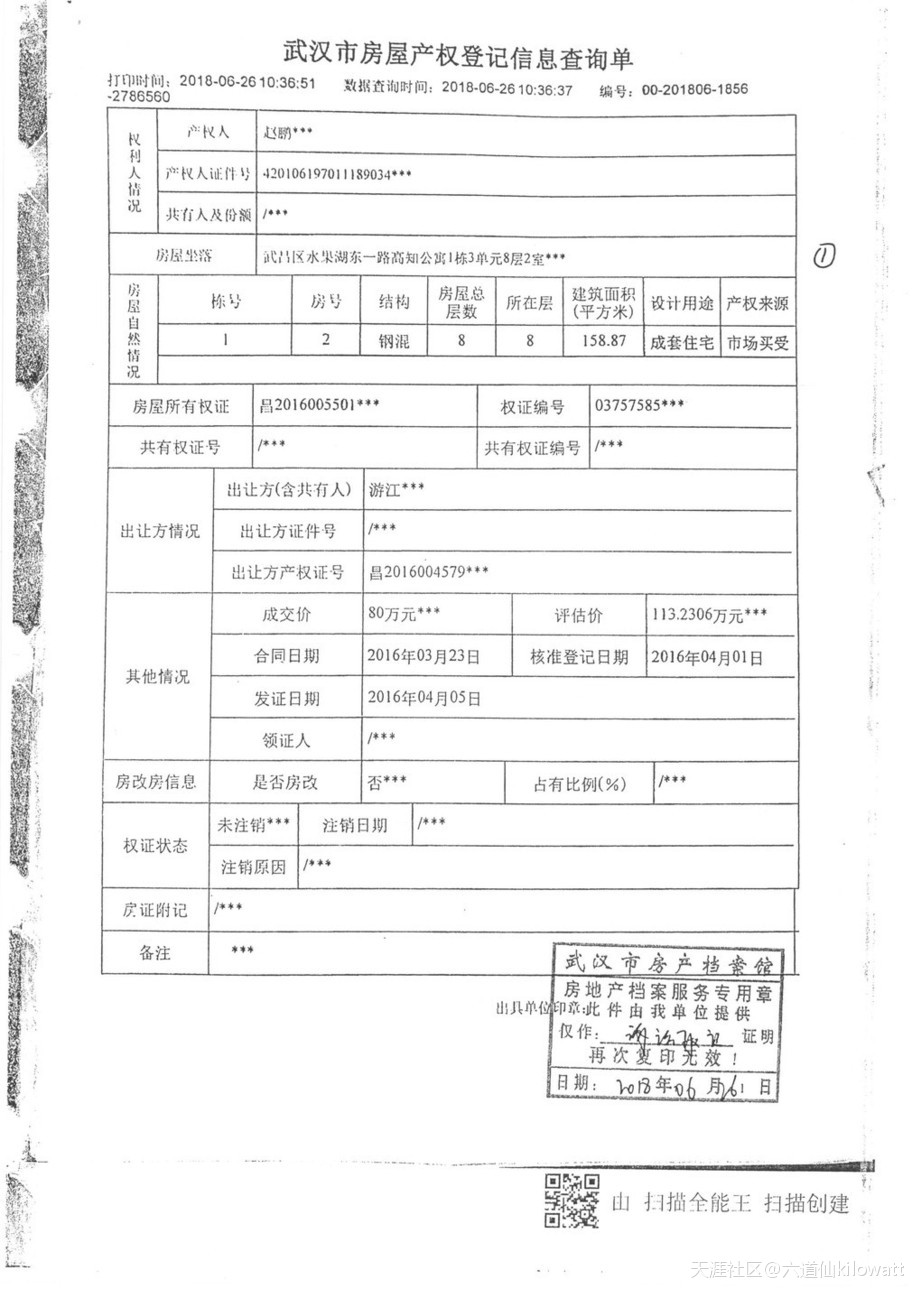 武汉市房屋产权登记信息查询单
打印时间：2018-06-26 10:36:51 数据查询时间：2018-06-26 10:36:37 编号：00-201806-1856
-2786560
权利人情况
产权人 赵鹏***
产权人证件号 420106197011189034***
共有人及份额 /***
房屋坐落 武昌区水果湖东一路高知公寓1栋3单元8层2室***
①
房屋自然情况
栋号 房号 结构 房屋总层数 所在层 建筑面积(平方米) 设计用途 产权来源
1 2 钢混 8 8 158.87 成套住宅 市场买受
房屋所有权证 昌2016005501*** 权证编号 03757585***
共有权证号 /*** 共有权证编号 /***
出让方情况
出让方(含共有人) 游江***
出让方证件号 /***
出让方产权证号 昌2016004579***
其他情况
成交价 80万元*** 评估价 113.2306万元***
合同日期 2016年03月23日 核准登记日期 2016年04月01日
发证日期 2016年04月05日
领证人 /***
房改房信息 是否房改 否*** 占有比例(%) /***
权证状态
未注销*** 注销日期 /***
注销原因 /***
房证附记 /***
备注 ***
武汉市房产档案馆
房地产档案服务专用章
出具单位印章:此件由我单位提供
仅作: 证明
再次复印无效！
日期: 2018年06月26日
由 扫描全能王 扫描创建
天涯社区@六道仙kilowatt